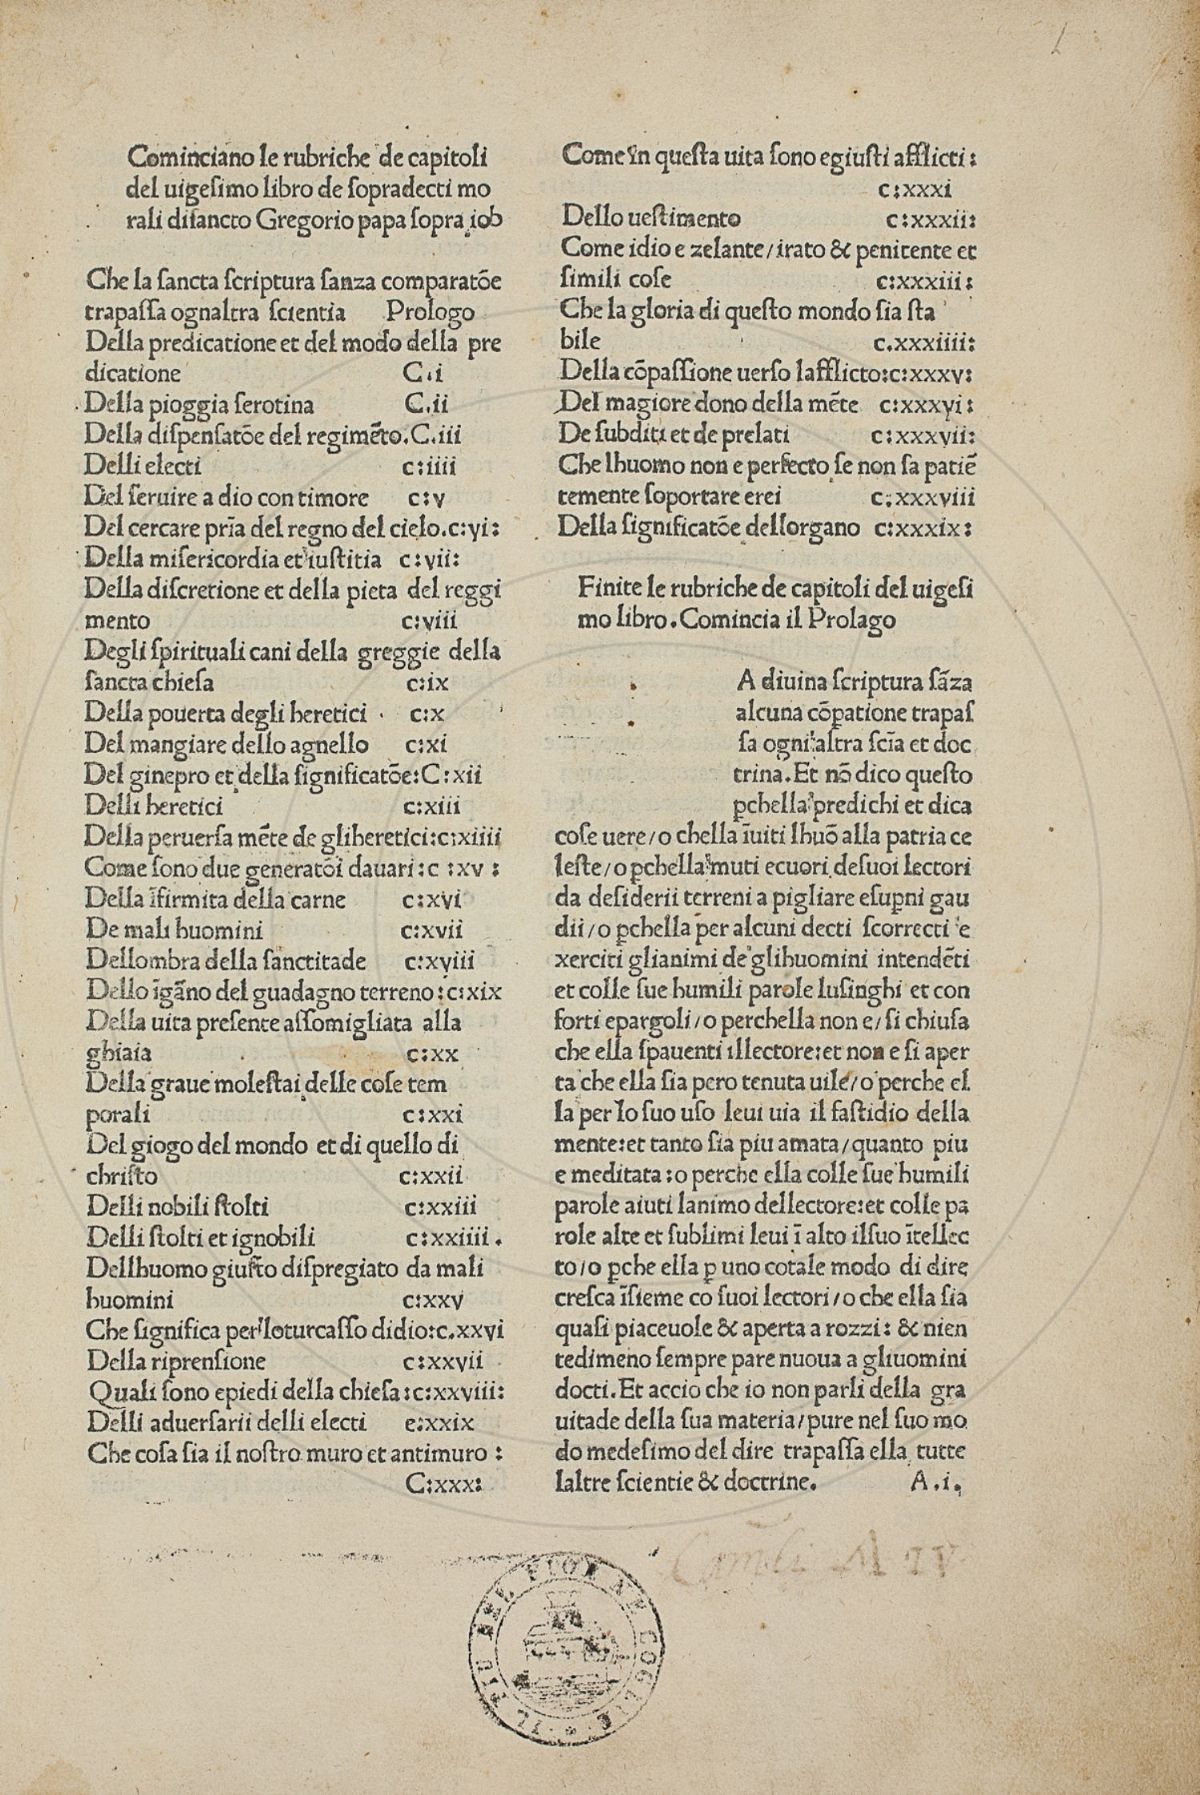 Cominciano le rubriche de capitoli
del uigesimo libro de sopradecti mo
rali disancto Gregorio papa sopra iob
Che la sancta scriptura sanza comparatõe
trapassa ognaltra scientia Prologo
Della predicatione et del modo della pre
dicatione C.i
Della pioggia serotina C.ii
Della dispensatõe del regimẽto.C.iii
Delli electi c:iiii
Del seruire a dio con timore c:v
Del cercare pria del regno del cielo.c:vi:
Della misericordia et iustitia c:vii:
Della discretione et della pieta del reggi
mento c:viii
Degli spirituali cani della greggie della
sancta chiesa c:ix
Della pouerta degli heretici c:x
Del mangiare dello agnello c:xi
Del ginepro et della significatõe:C:xii
Delli heretici c:xiii
Della peruersa mẽte de gliheretici:c:xiiii
Come sono due generatõi dauari:c:xv:
Della ĩfirmita della carne c:xvi
De mali huomini c:xvii
Dellombra della sanctitade c:xviii
Dello ĩgãno del guadagno terreno:c:xix
Della uita presente assomigliata alla
ghiaia c:xx
Della graue molestai delle cose tem
porali c:xxi
Del giogo del mondo et di quello di
christo c:xxii
Delli nobili stolti c:xxiii
Delli stolti et ignobili c:xxiiii.
Dellhuomo giusto dispregiato da mali
huomini c:xxv
Che significa per loturcasso didio:c.xxvi
Della riprensione c:xxvii
Quali sono epiedi della chiesa:c:xxviii:
Delli aduersarii delli electi e:xxix
Che cosa sia il nostro muro et antimuro:
C:xxx:
Come in questa uita sono egiusti afflicti:
c:xxxi
Dello uestimento c:xxxii:
Come idio e zelante/irato & penitente et
simili cose c:xxxiii:
Che la gloria di questo mondo sia sta
bile c.xxxiiii:
Della cõpassione uerso lafflicto:c:xxxv:
Del magiore dono della mẽte c:xxxvi:
De subditi et de prelati c:xxxvii:
Che lhuomo non e perfecto se non sa patiẽ
temente soportare erei c:xxxviii
Della significatõe dellorgano c:xxxix:
Finite le rubriche de capitoli del uigesi
mo libro.Comincia il Prolago
A diuina scriptura sãza
alcuna cõpatione trapas
sa ogni altra scĩa et doc
trina.Et nõ dico questo
ꝑchella predichi et dica
cose uere/o chella ĩuiti lhuõ alla patria ce
leste/o ꝑchella muti ecuori desuoi lectori
da desiderii terreni a pigliare esuꝑni gau
dii/o ꝑchella per alcuni decti scorrecti e
xerciti glianimi de glihuomini intendẽti
et colle sue humili parole lusinghi et con
forti epargoli/o perchella non e/si chiusa
che ella spauenti illectore:et non e si aper
ta che ella sia pero tenuta uile/o perche el
la per lo suo uso leui uia il fastidio della
mente:et tanto sia piu amata/quanto piu
e meditata:o perche ella colle sue humili
parole aiuti lanimo dellectore:et colle pa
role alte et sublimi leui ĩ alto ilsuo ĩtellec
to/o ꝑche ella ꝑ uno cotale modo di dire
cresca ĩsieme co suoi lectori/o che ella sia
quasi piaceuole & aperta a rozzi: & nien
tedimeno sempre pare nuoua a gliuomini
docti.Et accio che io non parli della gra
uitade della sua materia/pure nel suo mo
do medesimo del dire trapassa ella tutte
laltre scientie & doctrine. A.i.
IL PIU BEL FIOR NE COGLIE